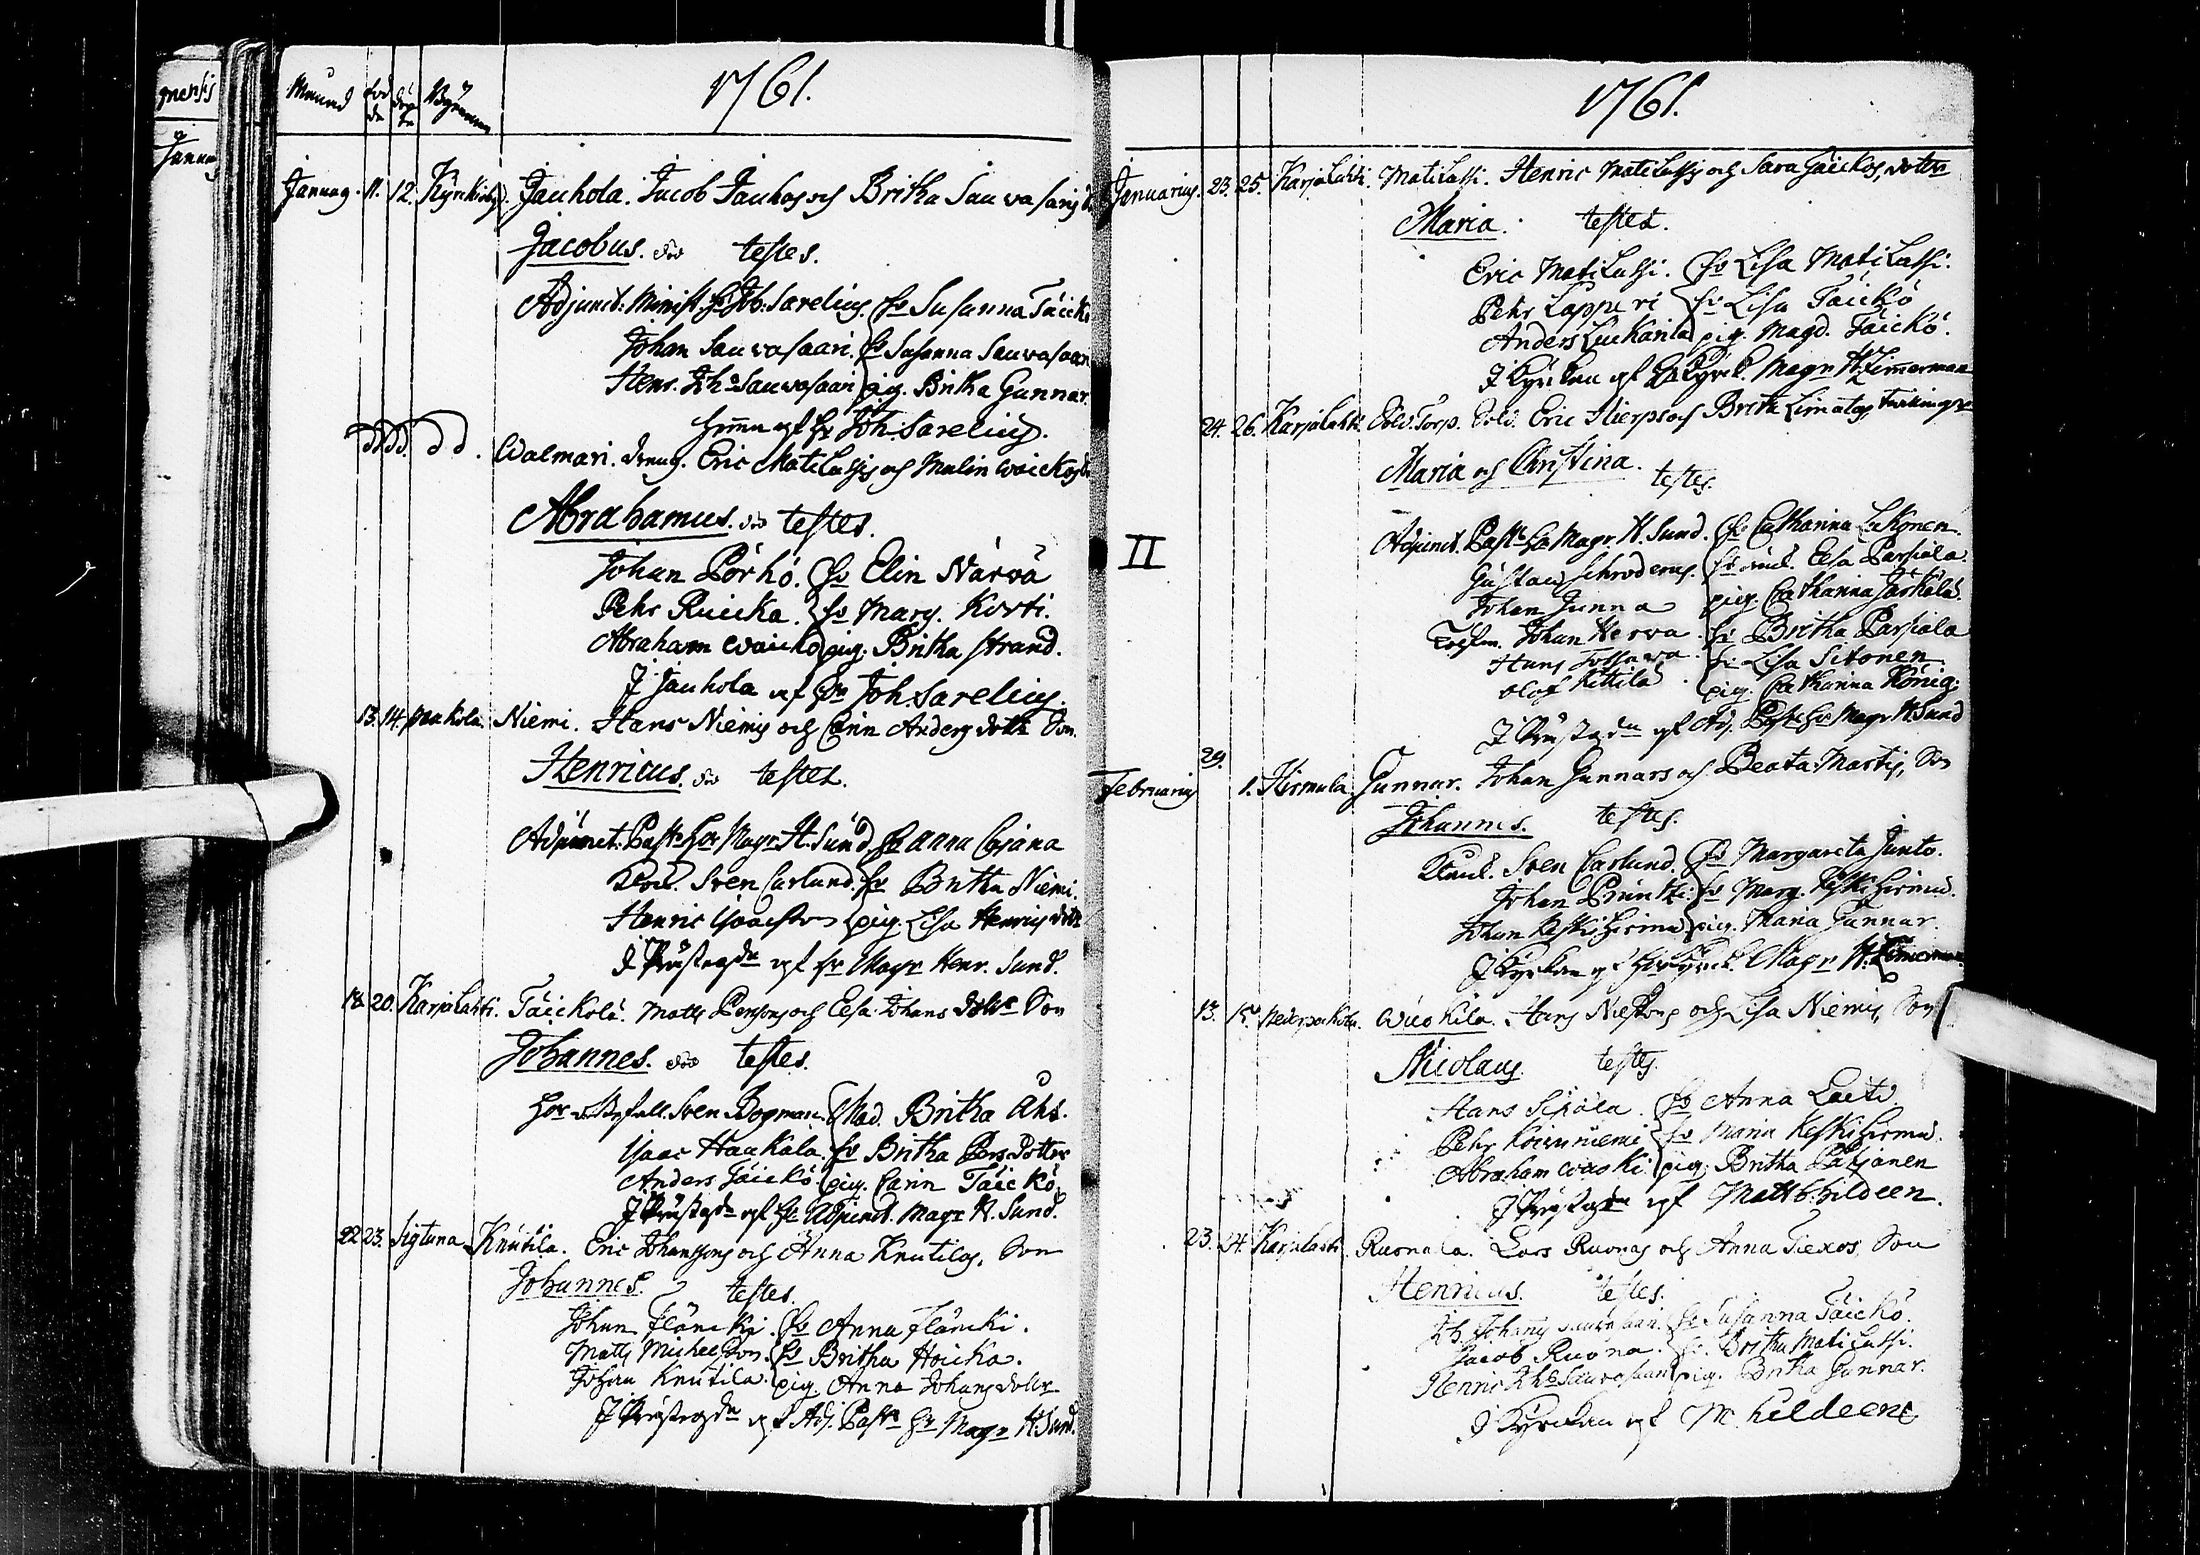 1761.
Januar. 11. 12. Jauhola. Jacob Jauhos och Britha Sauvasaris
Jacobus. död testes.
Adjunct: Minist. Hr Joh. Sarelius. hu Susanna Täickö
Johan Sauvasaari. hu Susanna Sauvasaari
Henr. Joh:s Sauvasaari pig. Britha Gunnar.
hemma af Hr Joh. Sarelius.
dd dd. d d. Walmari. dreng. Eric Matilassis och Malin Waickos
Abrahamus. död testes.
Johan Pörhö. hu Elin Närvä
Pehr Ruicka. hu Marg. Korti.
Abraham Waicko pig. Britha Strand.
I Jauhola af Hr Joh. Sarelius.
13. 14. Pra kola. Niemi. Hans Niemis och Carin Anders dotter Son.
Henricus. död testes.
Adjunct: Past: Hr Magr H. Sund. hu Anna Cajana
Sven Carlund. hu Britha Niemi.
Henric Isaacson pig. Lisa Henrics dotter
I Prästegdn af Hr Magr Henr. Sund.
18. 20. Karjalahti. Täickölä. Matts Persons och Elsa Johans dotter Son
Johannes. död testes.
Sven Bogman. Mad. Britha Ahl.
Isaac Haukala. hu Britha Pers dotter
Anders Täickö pig. Carin Täickö.
I Prästegdn af Hr Adjunct. Magr H. Sund.
22 23. Sigtuna Knutila. Eric Johanssons och Anna Knutilas, Son
Johannes. testes.
Johan Flöncki. hu Anna Flöncki.
Matts Michelson. hu Britha Hoicka.
Johan Knutila. pig. Anna Johans dotter
I Prästegdn af Adj. Past: Hr Magr H. Sund.
1761.
Januarius. 23. 25. Karjalahti. Matilassi. Henric Matilassis och Sara Täickös, dotter
Maria. testes.
Eric Matilassi. hu Lisa Matilassi.
Pehr Lapperi hu Lisa Täickö
Anders Luckarila pig. Magd. Täickö.
I Kyrkan af Magr H. Zimmerman
24. 26. Karjalahti. Sold. Torp. Sold. Eric Hierps och Brita Limatas Twillingar
Maria och Christina. testes.
II
Adjunct. Past: Hr Magr H. Sund. hu Catharina Lekonen
Gustav Schroderus. Elsa Parpala.
Johan Junna pig. Catharina Jäskälä.
Johan Herva. hu Britha Parpala
Hans hu Lisa Sitonen
Olof Kittilä. pig. Catharina König.
I Prästegdn af Adj. Past: Hr Magr H. Sund
29.
Februarius 1. Hirmula. Gunnar. Johan Gunnars och Beata Martis, Son
Johannes. testes.
Sven Carlund. hu Margareta Junto.
Johan Prüntti. hu Marg. Keskihirmu.
Johan Keskihirmu pig. Maria Gunnar.
I Kyrkan af Magr H. Zimerman.
13. 15. Nederpakola. Wuokila. Hans Nielsons och Lisa Niemis, Son
Nicolaus. testes.
Hans Sipola. hu Anna Laiti.
Pehr Koivuniemi hu Maria Keskihirmu.
Abraham Wuoki. pig. Britha Patjanen
I Prästegdn af Matth: Hildeen.
23. 24. Karjalahti Ruonala. Lars Ruonas och Anna Tiexos, Son
Henricus. testes.
hu Susanna Täickö.
Jacob Ruona. hu Britha Matilassi.
Henric Joh:s Sauvosaari pig. Britha Gunnar.
I Kyrckan af M: Hildeen